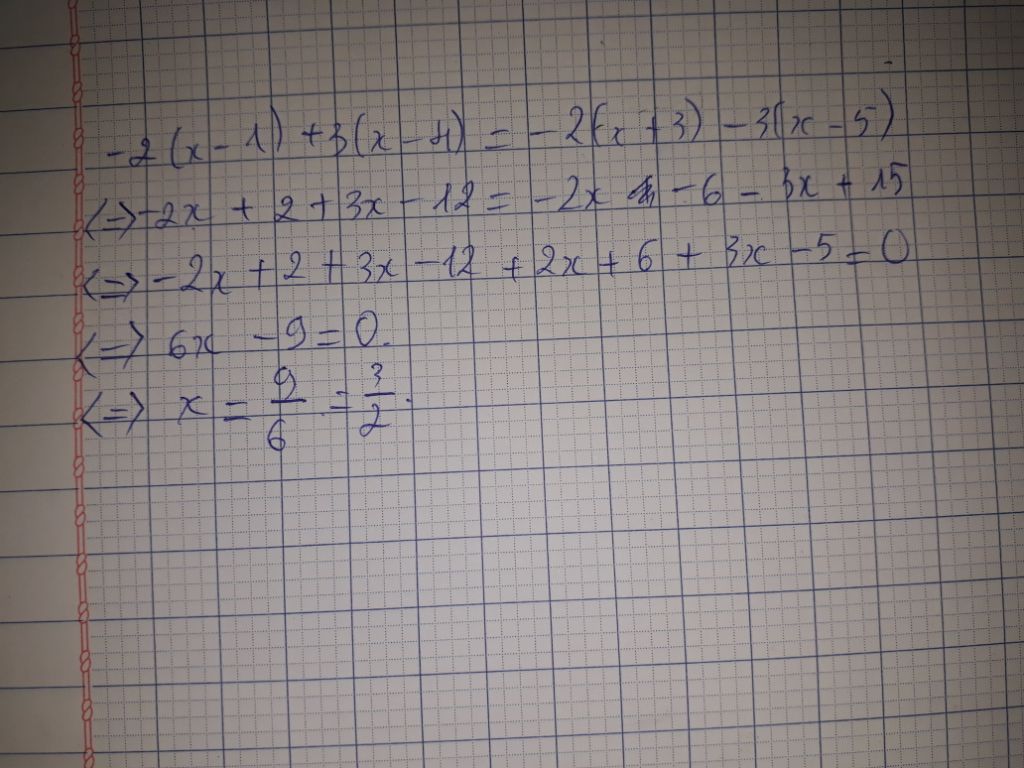 -2(x-1)+3(x-4)=-2(x+3)-3(x-5)
<=>-2x+2+3x-12=-2x -6-3x+15
<=>-2x+2+3x-12+2x+6+3x-5=0
<=> 6x-9=0.
<=> x=9/6=3/2.